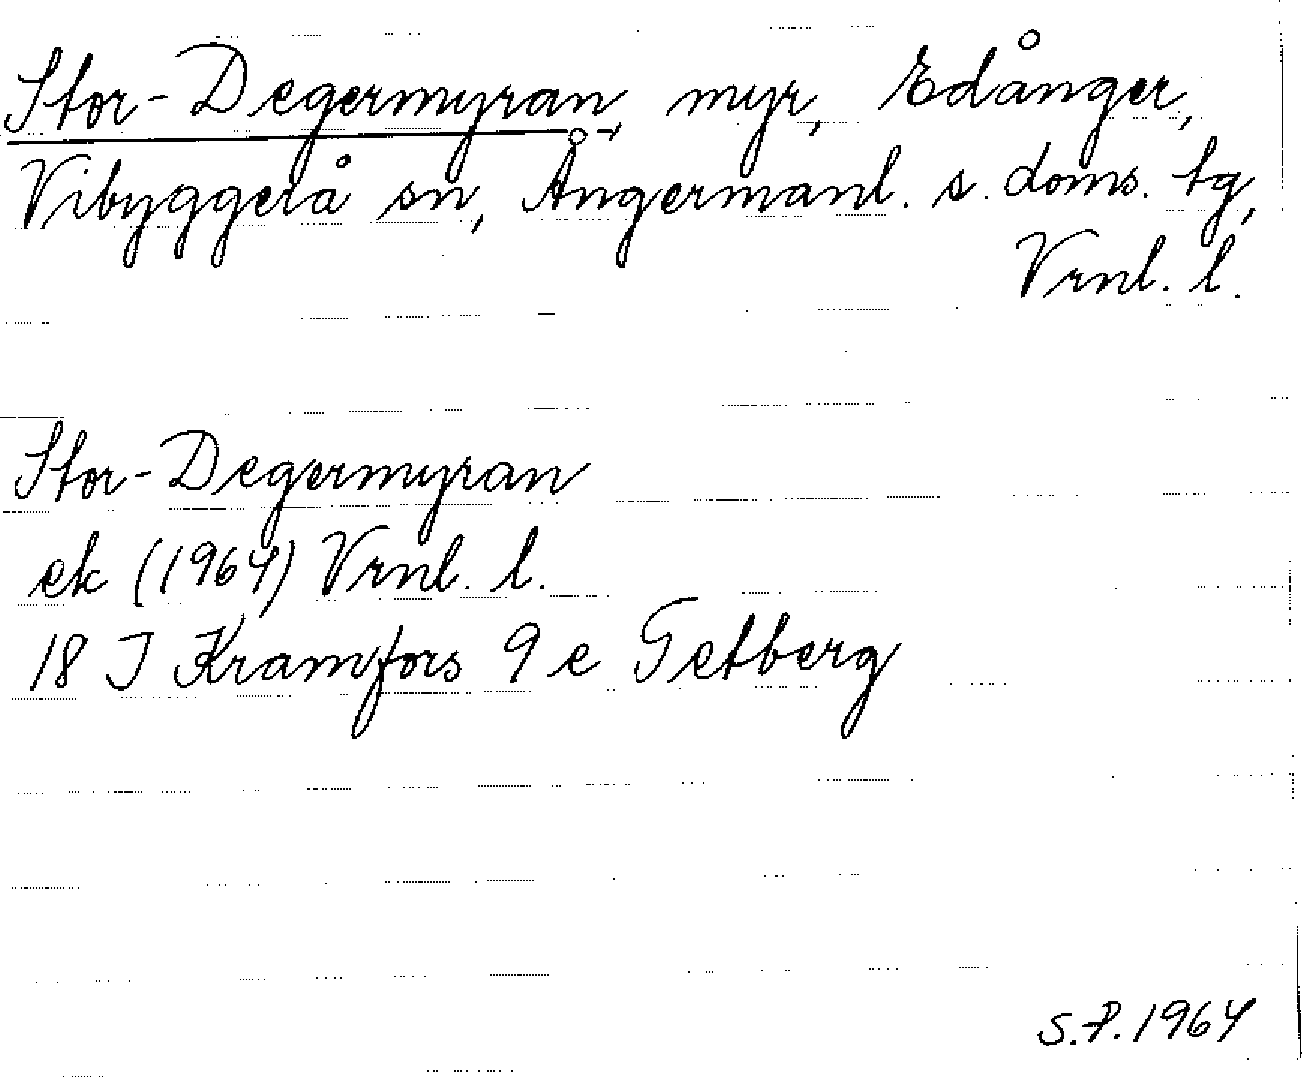 Stor-Degermyran, myr, Edånger,
Vibyggerå sn, Ångermanl. s. doms. tg,
Vrnl. l.
Stor-Degermyran
ek (1964) Vrnl. l.
18 I Kramfors 9 e Getberg
S.P. 1964